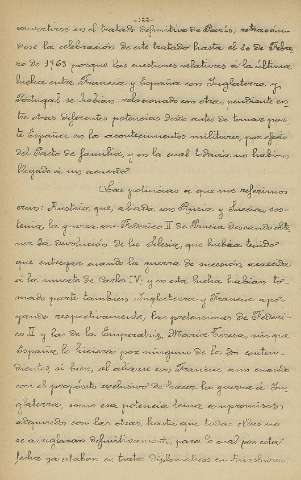 -122-
convertirse en el tratado definitivo de París, retrasán-
dose la celebración de este tratado hasta el 10 de Febre-
ro de 1763 porque las cuestiones relativas á la última
lucha entre Francia y España con Inglaterra y
Portugal se habían relacionado con otras pendientes en-
tre otras diferentes potencias desde antes de tomar par-
te España en los acontecimientos militares, por efecto
del Pacto de familia, y en la cual todavía no habían
llegado á un acuerdo.
Las potencias á que nos referimos
eran: Austria que, aliada con Rusia y Suecia sos-
tenía la guerra con Federico II de Prusia deseando obte-
ner la devolución de la Silesia, que hubo tenido
que entregar cuando la guerra de sucesión acaecida
á la muerte de Carlos VI; y en esta lucha habían to-
mado parte también Inglaterra y Francia apo-
yando respectivamente, las pretensiones de Federi-
co II y las de la Emperatriz María Teresa, aunque
España lo hiciera por ninguno de los dos conten-
dientes, si bien, al aliarse con Francia aun cuando
con el propósito exclusivo de hacer la guerra á In-
glaterra, como esa potencia tenía compromisos
adquiridos con las otras, hasta que todas ellas no
se arreglaran definitivamente, para lo cual por esta
fecha ya estaban en tratos diplomáticos en